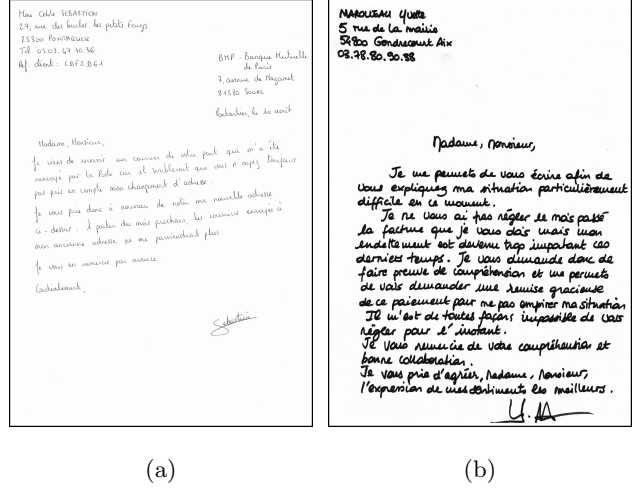 Mme Odile SEBASTIEN
27, rue des buches les petits Fourgs
25300 PONTARLIER
Tél. 03.03.47.70.36
Réf. client : CBFZDG1
BMP - Banque Mutuelle
de Paris
7, avenue de Mazamet
81580 SOUAL
Pontarlier, le 10 août
Madame, Monsieur,
Je viens de recevoir un courrier de votre part que m'a été
renvoyé par la Poste car il semblerait que vous n'ayez toujours
pas pris en compte mon changement d'adresse.
Je vous prie donc à nouveau de noter ma nouvelle adresse
ci-dessus. A partir du mois prochain, les courriers envoyés à
mon ancienne adresse ne me parviendront plus.
Je vous en remercie par avance
Cordialement,
Sebastien
(a)
MAROLLEAU Yvette
5 rue de la mairie
54800 Gondrecourt Aix
03.78.80.90.38
Madame, Monsieur,
Je me permets de vous écrire afin de
vous expliquez ma situation particulièrement
difficile en ce moment.
Je ne vous ai pas régler le mois passé
la facture que je vous dois mais mon
endettement est devenu trop important ces
derniers temps. Je vous demande donc de
faire preuve de compréhension et me permets
de vous demander une remise gracieuse
de ce paiement pour ne pas empirer ma situation
Il m'est de toutes façons impossible de vous
régler pour l'instant.
Je vous remercie de votre compréhension et
bonne collaboration.
Je vous prie d'agréer, Madame, Monsieur,
l'expression de mes sentiments les meilleurs.
(b)